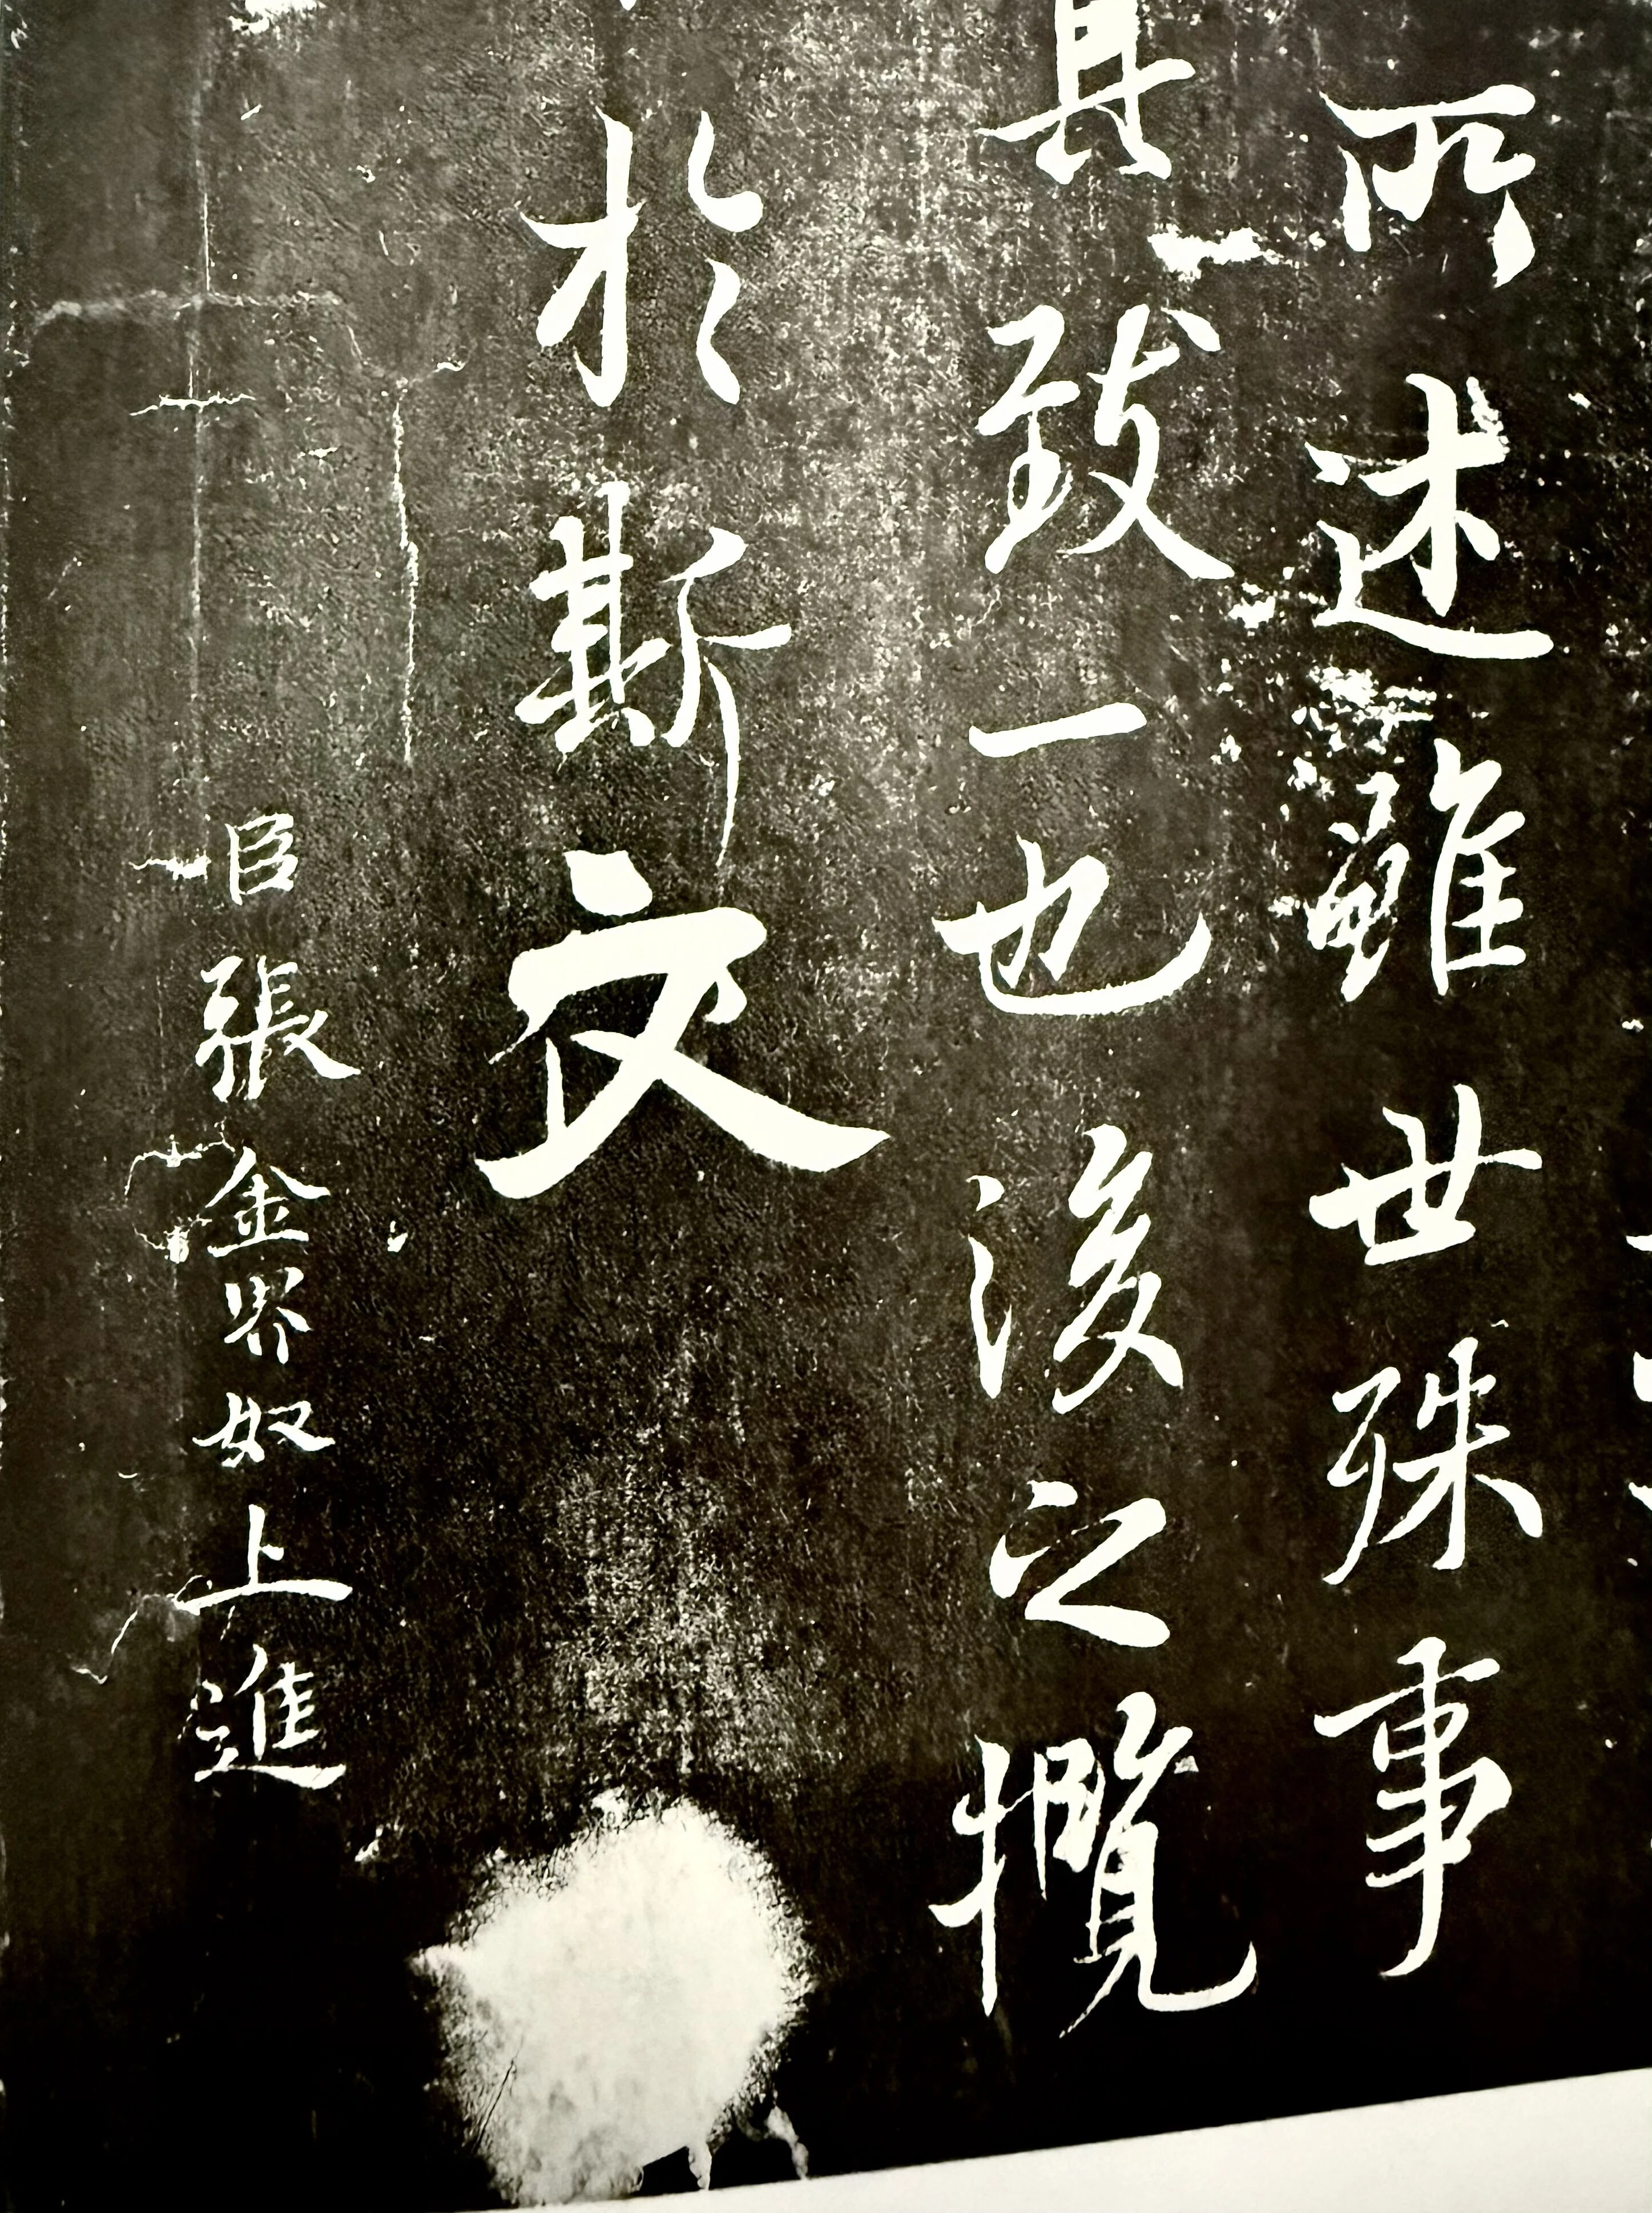 所述雖世殊事
其致一也後之攬
於斯文
臣張金界奴上進